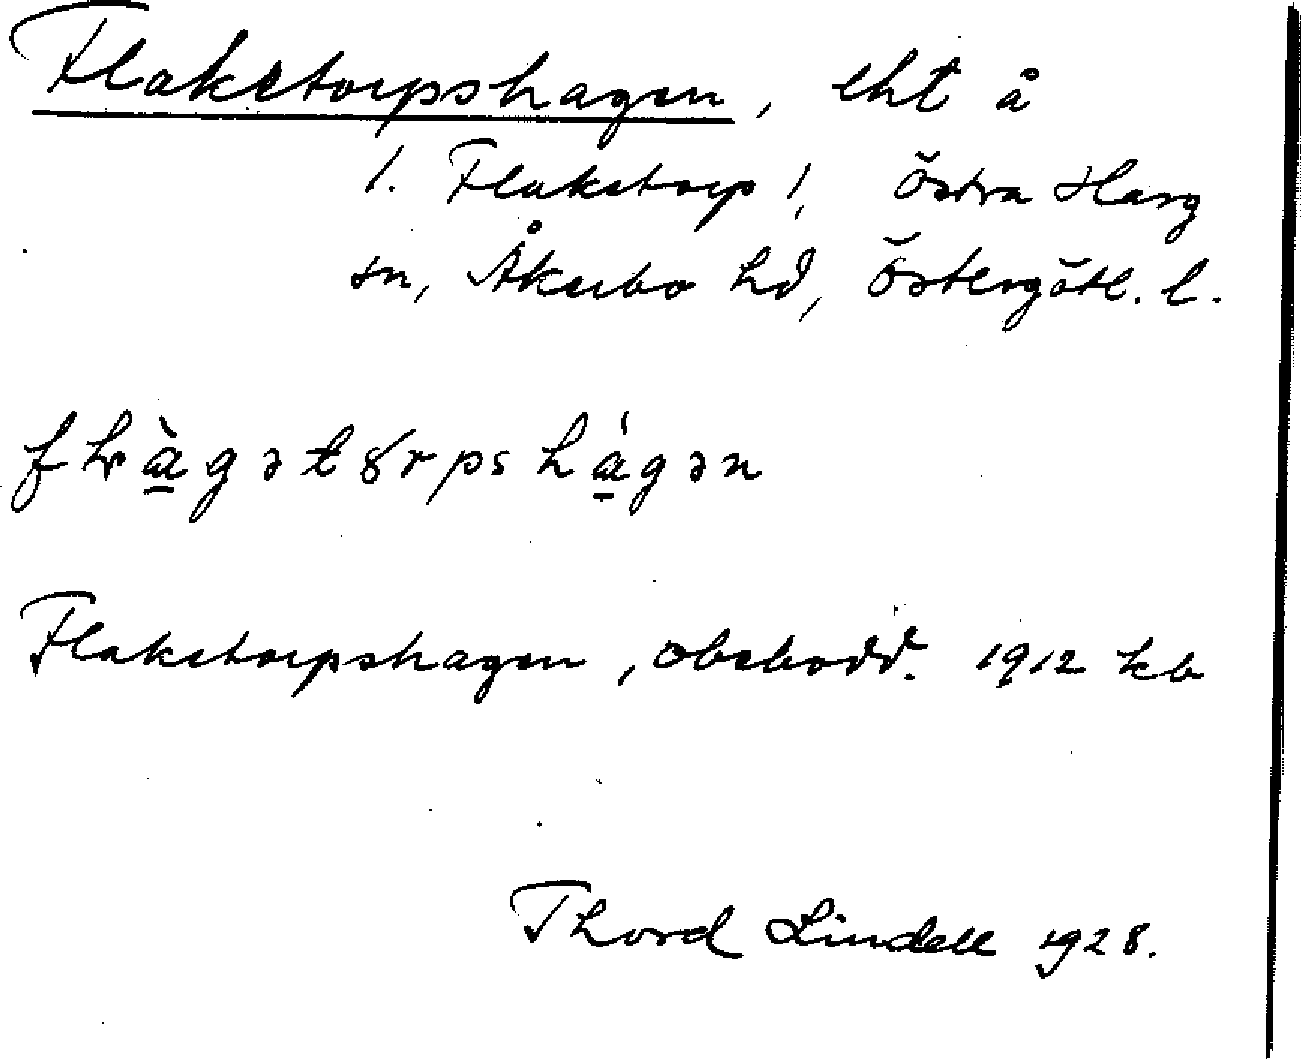 Flakstorpshagen, lht å
1. Flakstorp 1, Östra Harg
sn, Åkerbo hd, Östergötl. l.
Flakstorpshagen, obebodd. 1912 kb
Thord Lindell 1928.